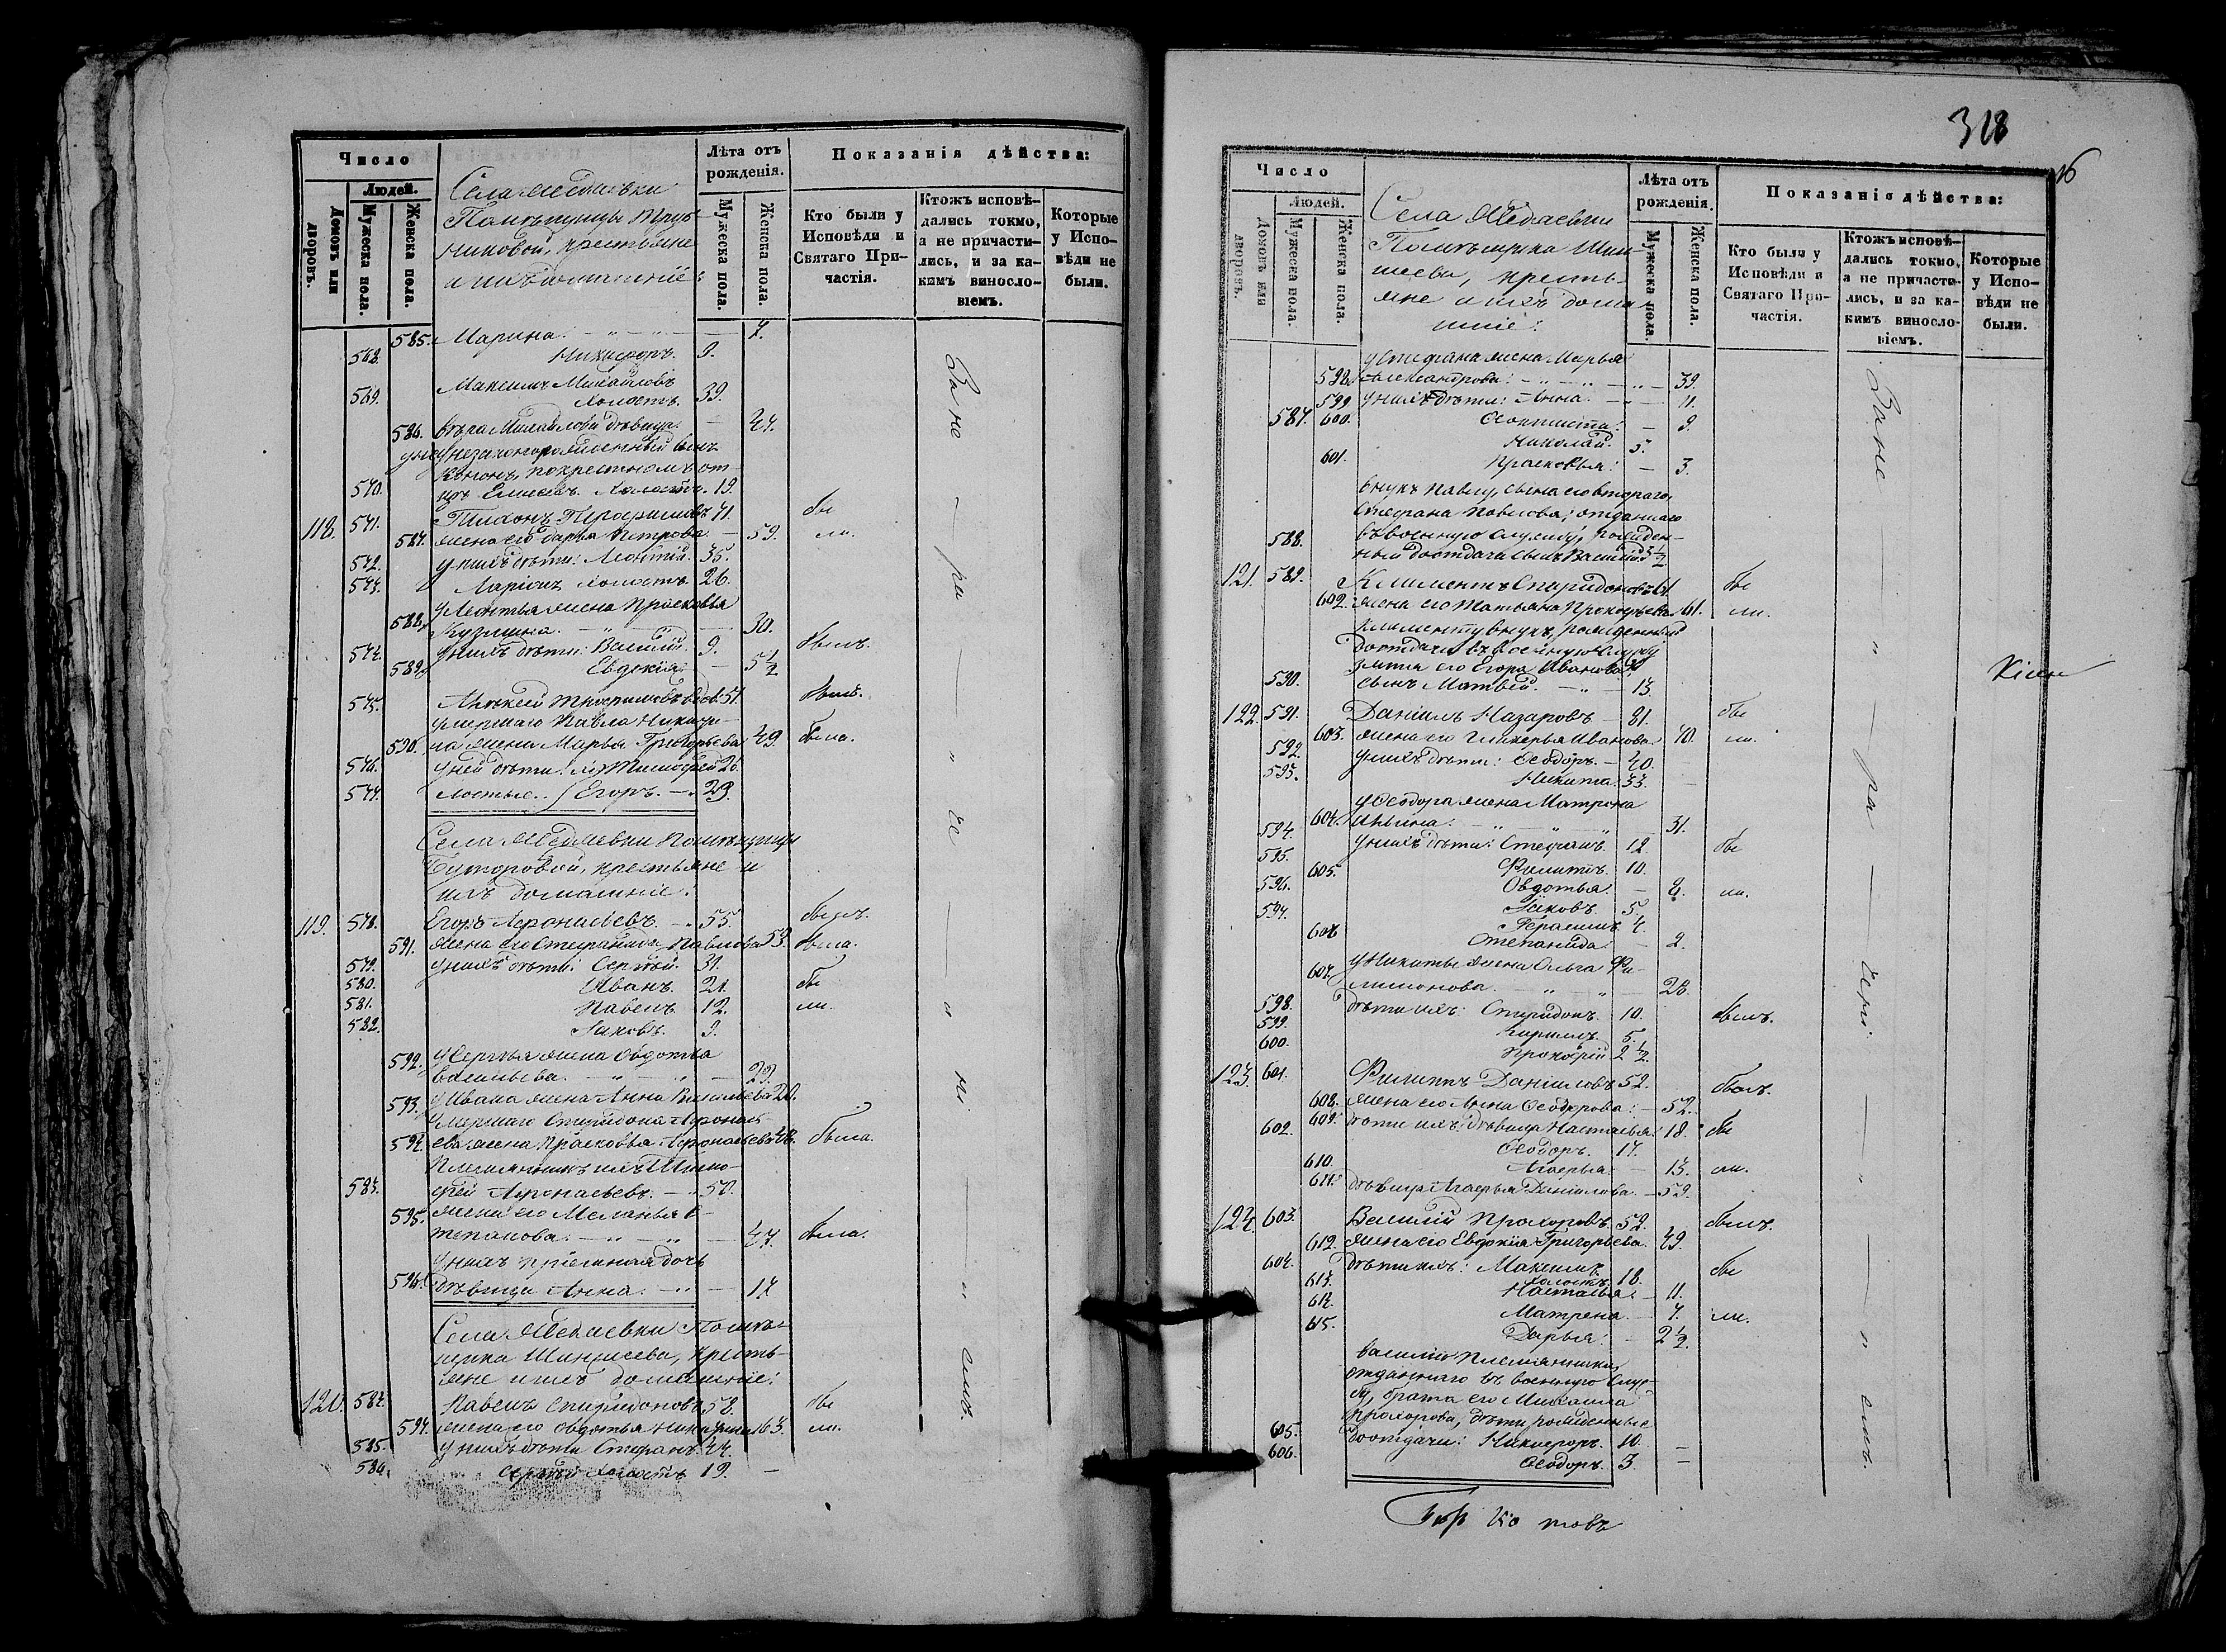 Число
Людей.
Домовъ или дворовъ.
Мужеска пола.
Женска пола.
Села
Помѣщицы
никовой, крестьяне
Лѣта отъ рожденія.
Мужеска пола.
Женска пола.
Показанія дѣйства:
Кто были у Исповѣди и Святаго Причастія.
Ктожъ исповѣдались токмо, а не причастились, и за какимъ винословіемъ.
Которые у Исповѣди не были.
585. Марина. — " — — 7.
568. Никифоръ. 9.
569. Максимъ Михайловъ
холостъ. 39.
586. Вѣра Михайлова дѣвица. — 47.
у нея незаконнорожденный сынъ
по крестному от-
570. цу Елисеевъ. Холостъ. 19.
118. 571. Тихонъ 71. бы
587. жена его Дарья Петрова. — 59. ли.
572. у нихъ дѣти: Леонтій. 35.
573. Ларіонъ холостъ 26.
у Леонтья жена Прасковья
588. Кузмина. — 30.
574. у нихъ дѣти: Василій. 9. былъ.
589. Евдокія. — 5 1/2
575. Алексѣй 51. былъ.
умершаго Павла
590. жена Марья Григорьева 49. была.
576. у ней дѣти: Тимофей 26.
577. лостые. Егоръ. — 23.
Села Помѣщицы
Буторовой, крестьяне и
ихъ домашніе:
119. 578. Егоръ Афонасьевъ. — 55. былъ.
591. жена его Степанида Павлова 53. была.
579. у нихъ дѣти: Сергѣй. 31.
580. Иванъ. 21. бы
581. Павелъ 12. ли.
582. Яковъ. 9.
592. у Сергѣя жена Овдотья
Васильева. — " — — 29.
593. у Ивана жена Анна Васильева 20.
умершаго Спиридона Афонась-
594. ева жена Прасковья Афонасьева 48. была.
Племянникъ ихъ Тимо-
583. фей Афонасьевъ. — 50.
595. жена его Меланья С-
тепанова. — " — " — 47 была.
у нихъ пріемная дочь
596. дѣвица Анна. — " — 17
Села Помѣ-
щика Шишеева, кресть-
яне и ихъ домашніе:
120. 584. Павелъ Спиридоновъ 58. бы
597. жена его Овдотья 63. ли.
585. у нихъ дѣти Стефанъ. 44.
586. Сергѣй холостъ 19. —
За не — ра — " че — " ні — " емъ.
318
16
Число
Людей.
Домовъ или дворовъ.
Мужеска пола.
Женска пола.
Села
Помѣщика Ши-
шеева, кресть-
яне и ихъ дома-
шніе:
Лѣта отъ рожденія.
Мужеска пола.
Женска пола.
Показаніе дѣйства:
Кто были у Исповѣди и Святаго Причастія.
Ктожъ исповѣдались токмо, а не причастились, и за какимъ винословіемъ.
Которые у Исповѣди не были.
у Стефана жена Марья
598. Александрова: — " — " — 39.
599 у нихъ дѣти: Анна. — 11.
587. 600. Феоктиста. — 9.
Николай. 5.
601. Прасковья: — 3.
внукъ Павлу, сына его втораго,
Стефана Павлова, отданнаго
въ военную службу, рожден-
588. ный до отдачи сынъ Василій 5 1/2
121. 589. Климентъ Спиридоновъ 61. бы
602. жена его Татьяна Прокофьева 61. ли.
Клименту внукъ, рожденный
до отдачи въ военную службу
зятя его Егора Иванова,
590. сынъ Матвѣй. — " — 13.
122. 591. Даніилъ Назаровъ — 81. бы
603. жена его Гликерья Иванова. 70. ли.
592. у нихъ дѣти: Феодоръ. — 40.
593. Никита. 33.
у Феодора жена Матрона
604. Ильина: — " — " — 31.
594. у нихъ дѣти: Стефанъ. 12 бы
595. Филипъ. 10.
605. Овдотья. — 8. ли.
596. Яковъ. 5.
597. Герасимъ 4.
606 Степанида. — 2.
607. у Никиты жена Ольга Фи-
лимонова. — " — " — 28.
598. дѣти ихъ: Спиридонъ. 10. былъ.
599. Кирилъ. 5.
600. Прокофій. 2 1/2.
123. 601. Филипъ Даніиловъ 52. былъ.
608. жена его Анна Феодорова: — 52.
609. дѣти ихъ: дѣвица Настасья: 18. бы
602. Феодоръ. 17.
610. Агафья: — 13. ли.
611. дѣвица Агафья Даніилова. — 59.
124. 603. Василій Прохоровъ 52. былъ.
612. жена его Евдокія Григорьева. 49.
604. дѣти ихъ: Максимъ бы
холостъ. 18.
613. Настасья: — 11.
614. Матрена — 7. ли.
615. Дарья: — 2 1/2.
Василію племянники,
отданнаго въ военную служ-
бу, брата его Михаила
Прохорова, дѣти рожденные
605. до отдачи: Никифоръ. 10. —
606. Феодоръ. 3. —
За не — " — ра — че — " ні — " емъ.